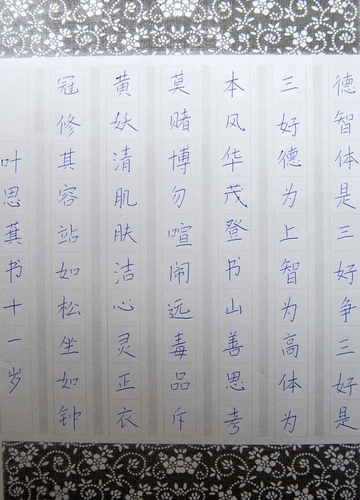 德智体是三好争三好是
三好德为上智为高体为
本风华茂登书山善思考
莫赌博勿喧闹远毒品斥
黄妖清肌肤洁心灵正衣
冠修其容站如松坐如钟
叶思萁书十一岁